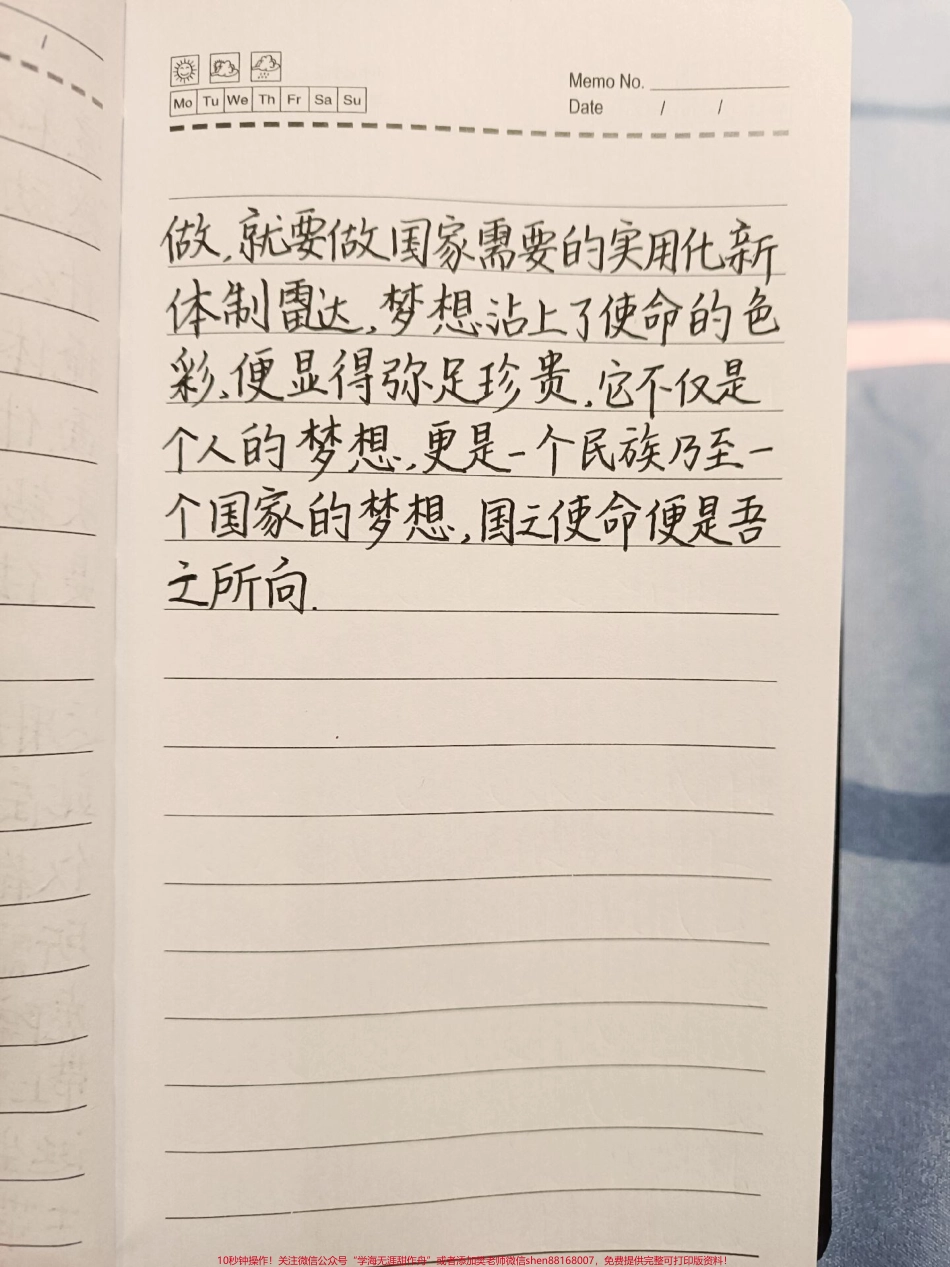 Memo No.
Mo Tu We Th Fr Sa Su
Date / /
做,就要做国家需要的实用化新
体制雷达,梦想沾上了使命的色
彩,便显得弥足珍贵,它不仅是
个人的梦想,更是一个民族乃至一
个国家的梦想,国之使命便是吾
之所向.
10秒钟操作!关注微信公众号“学海无涯甜作舟”或者添加吴老师微信shen88168007,免费提供完整可打印版资料!